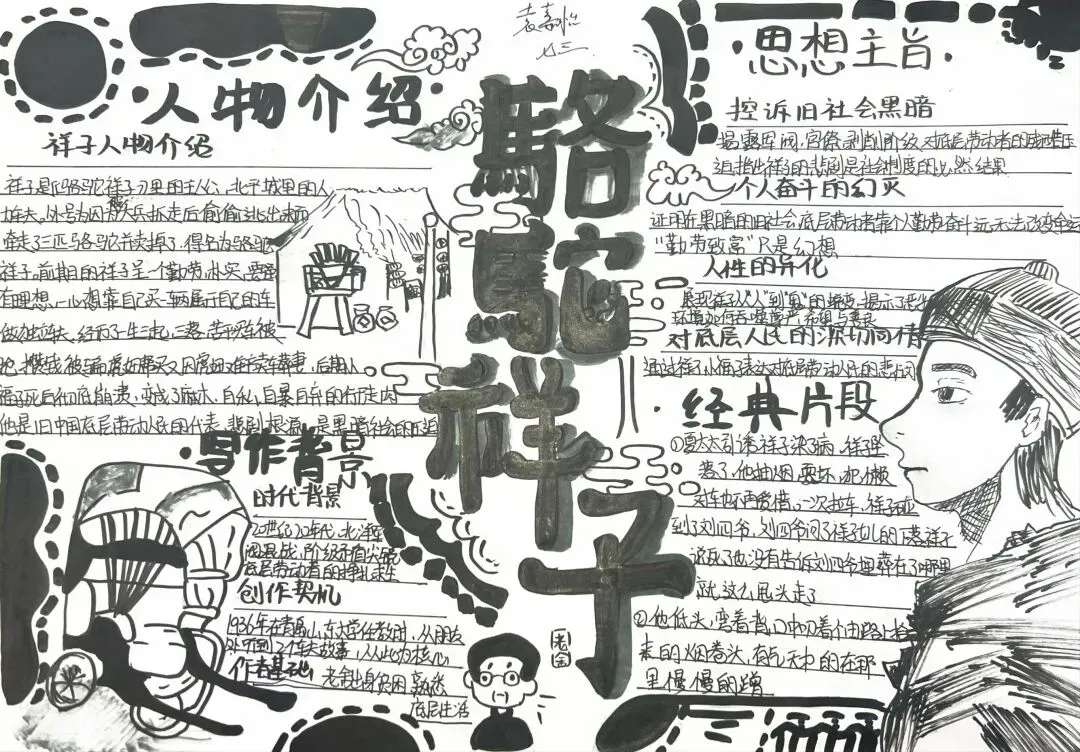 人物介绍
祥子人物介绍
祥子是《骆驼祥子》里的主人公，北平城里的人
力车夫，外号为因为大兵抓走后偷偷逃出来
牵走了三匹骆驼并卖掉了，得名为骆驼
祥子，前期的祥子是一个勤劳，朴实，要强
有理想，一心想靠自己买一辆属于自己的车
做独立车夫，经历了三起三落，苦买车被
抢，攒钱被骗，虎妞难产卖车葬妻，后期小
福子死后彻底崩溃，变成了麻木，自私，自暴自弃的行走肉
他是旧中国底层劳动人民的代表，悲剧根源是黑暗社会的压迫
写作背景
时代背景
20世纪20年代，北洋军
阀混战，阶级矛盾尖锐
底层劳动者的挣扎求生
创作契机
1936年在青岛山东大学任教时，从朋友
处听到了车夫故事，从此为核心
作者基础
老舍出身贫困，熟悉
底层生活
駱駝祥子
老舍
七三
思想主旨
控诉旧社会黑暗
揭露军阀，官僚，剥削阶级，对底层劳动者的残酷压
迫，指出祥子的悲剧是社会制度的必然结果
个人奋斗的幻灭
证明在黑暗的旧社会底层劳动者靠个人勤劳奋斗远无法改变命运
“勤劳致富”只是幻想
人性的异化
展现祥子从“人”到“鬼”的蜕变，揭示了
环境如何吞噬尊严，希望与善良
对底层人民的深切同情
通过祥子，小福子表达对底层劳动人民的
经典片段
①夏太太引诱祥子染病，祥子
了，他抽烟，耍坏，犯懒
对车也不再爱惜，一次拉车，祥子
到了刘四爷，刘四爷问了祥子女儿的下落祥子
说死了也没有告诉刘四爷埋葬在了哪里
就这么甩头走了
②他低头，弯着背，口中叼着个由路上拾
来的烟卷头，有气无力的在那
里慢慢的蹭